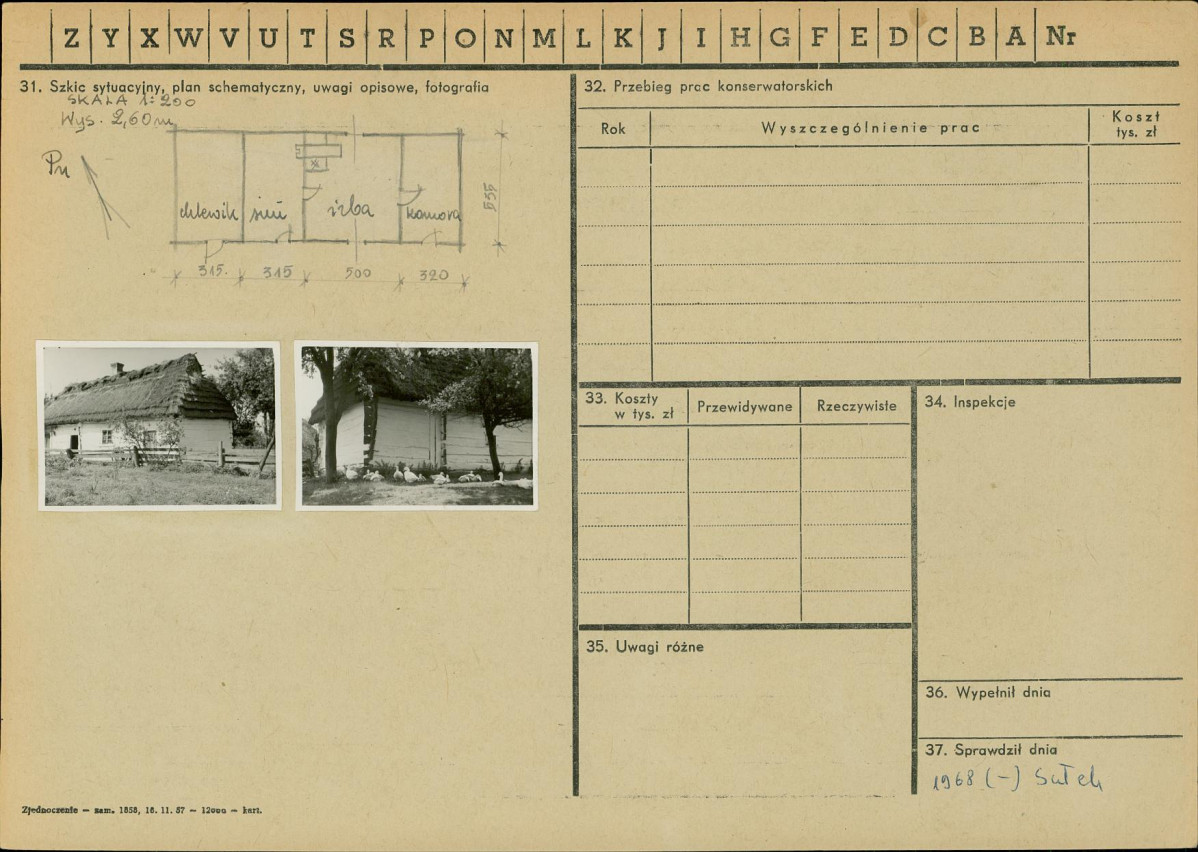 Z Y X W V U T S R P O N M L K J I H G F E D C B A Nr
31. Szkic sytuacyjny, plan schematyczny, uwagi opisowe, fotografia
SKALA 1:200
Wys. 2,60 m
Pn
chlewik sień izba komora
555
315 315 500 320
32. Przebieg prac konserwatorskich
Rok Wyszczególnienie prac Koszt tys. zł
33. Koszty w tys. zł Przewidywane Rzeczywiste
34. Inspekcje
35. Uwagi różne
36. Wypełnił dnia
37. Sprawdził dnia
1968 (-)
Zjednoczenie — zam. 1858, 16. 11. 57 — 12000 — kart.